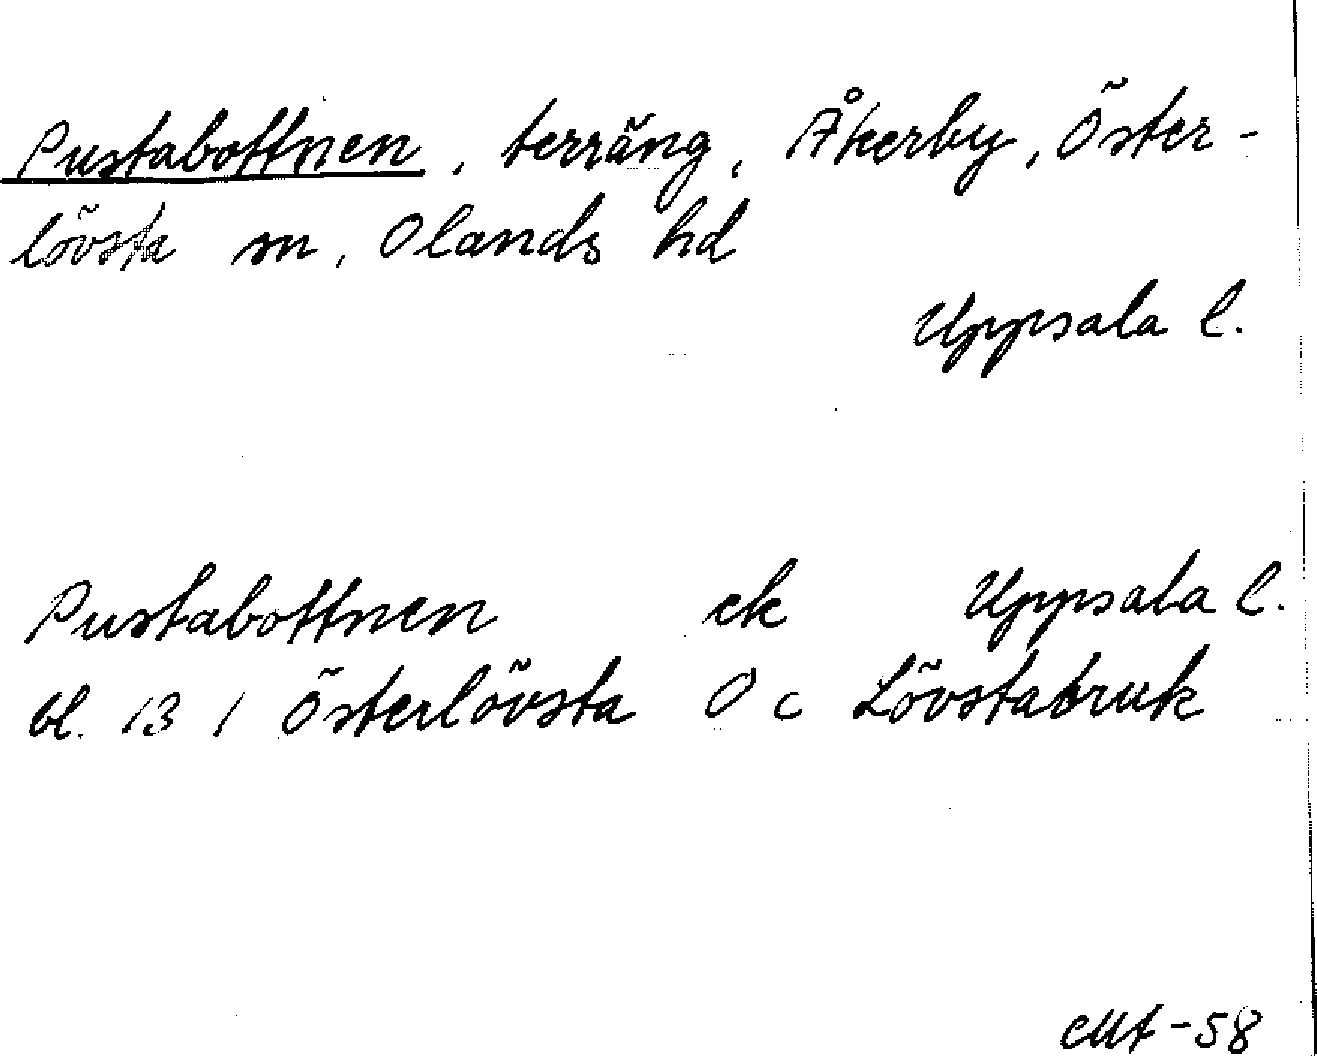 Pustabottnen, terräng, Åkerby, Öster-
lövsta sn, Olands hd
Uppsala l.
Pustabottnen ek Uppsala l.
bl. 13 I Österlövsta O c Lövstabruk
-58